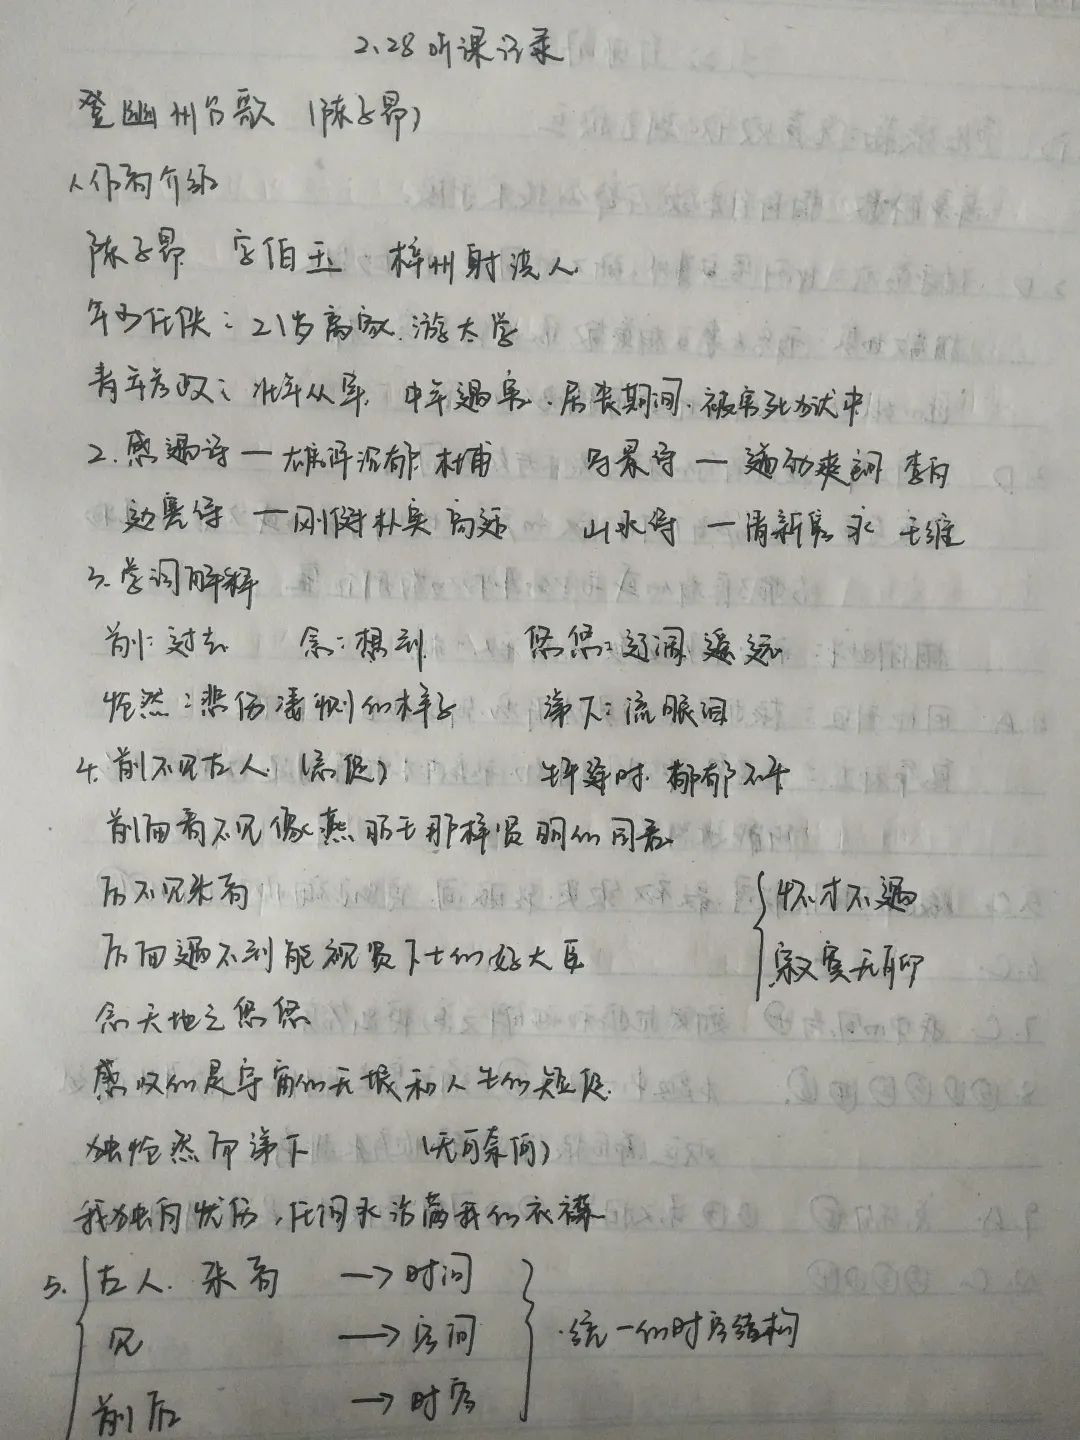 2.28 听课记录
登幽州台歌 (陈子昂)
1.作者介绍
陈子昂 字伯玉 梓州射洪人
年少任侠：21岁离家.游太学
青年为政：壮年从军. 中年遇害.居丧期间.被害死狱中
2.感遇诗 — 雄浑沉郁 杜甫 写景诗 — 遒劲爽朗 李白
边塞诗 — 刚健朴实 高适 山水诗 — 清新隽永 王维
3.字词解释
前：过去 念：想到 悠悠：辽阔 遥远
怆然：悲伤凄恻的样子 涕下：流眼泪
4.前不见古人 (急促) 生不逢时 郁郁不平
前面看不见像燕昭王那样贤明的国君
后不见来者 { 怀才不遇
后面遇不到能礼贤下士的好大臣 寂寞无聊
念天地之悠悠
感叹的是宇宙的无垠和人生的短促.
独怆然而涕下 (无可奈何)
我独自忧伤，任泪水沾满我的衣襟
5. { 古人. 来者 → 时间
见 → 空间 } .统一的时空结构
前后 → 时空